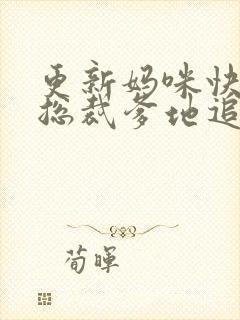 更新妈咪快
总裁爹地追
荀晖